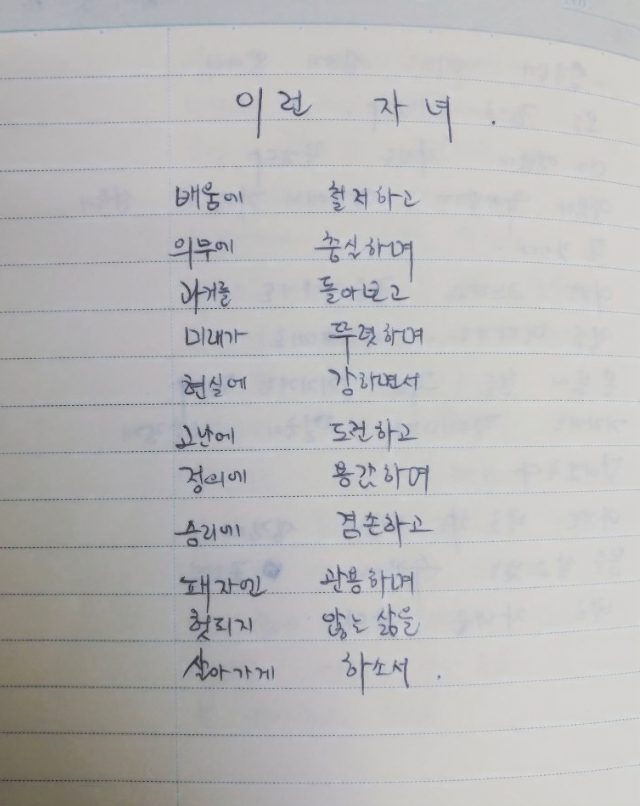 이런 자녀.
배움에 철저하고
의무에 충실하며
과거를 돌아보고
미래가 뚜렷하며
현실에 강하면서
고난에 도전하고
정의에 용값하며
승리에 겸손하고
패자엔 관용하며
헛되지 않는 삶을
살아가게 하소서.